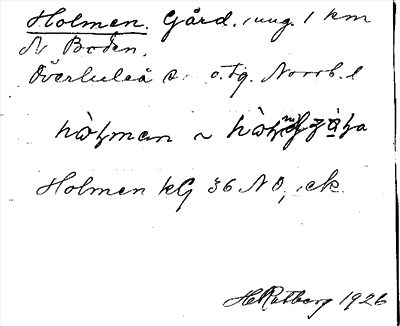 Holmen. Gård, ung. 1 km
N Boden.
Överluleå s. o. tg. Norrb. l
hòlman ~
Holmen kG 36 NO, ek.
H Rutberg 1926